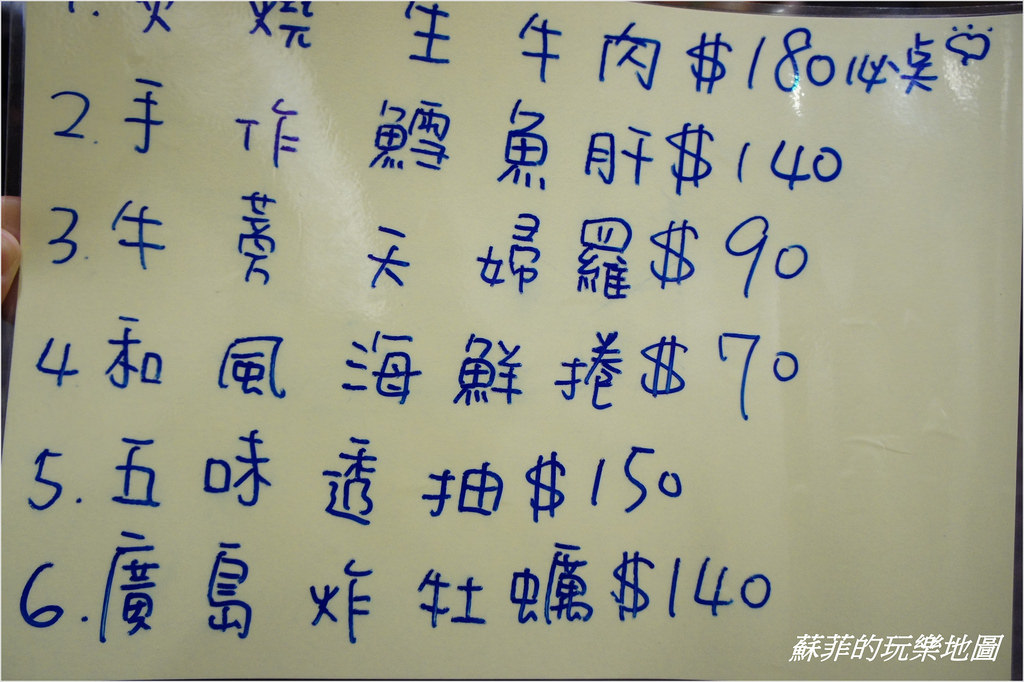 1. 炙燒生牛肉$180必奌
2. 手作鱈魚肝$140
3. 牛蒡天婦羅$90
4 和風海鮮捲$70
5. 五味透抽$150
6. 廣島炸牡蠣$140
蘇菲的玩樂地圖